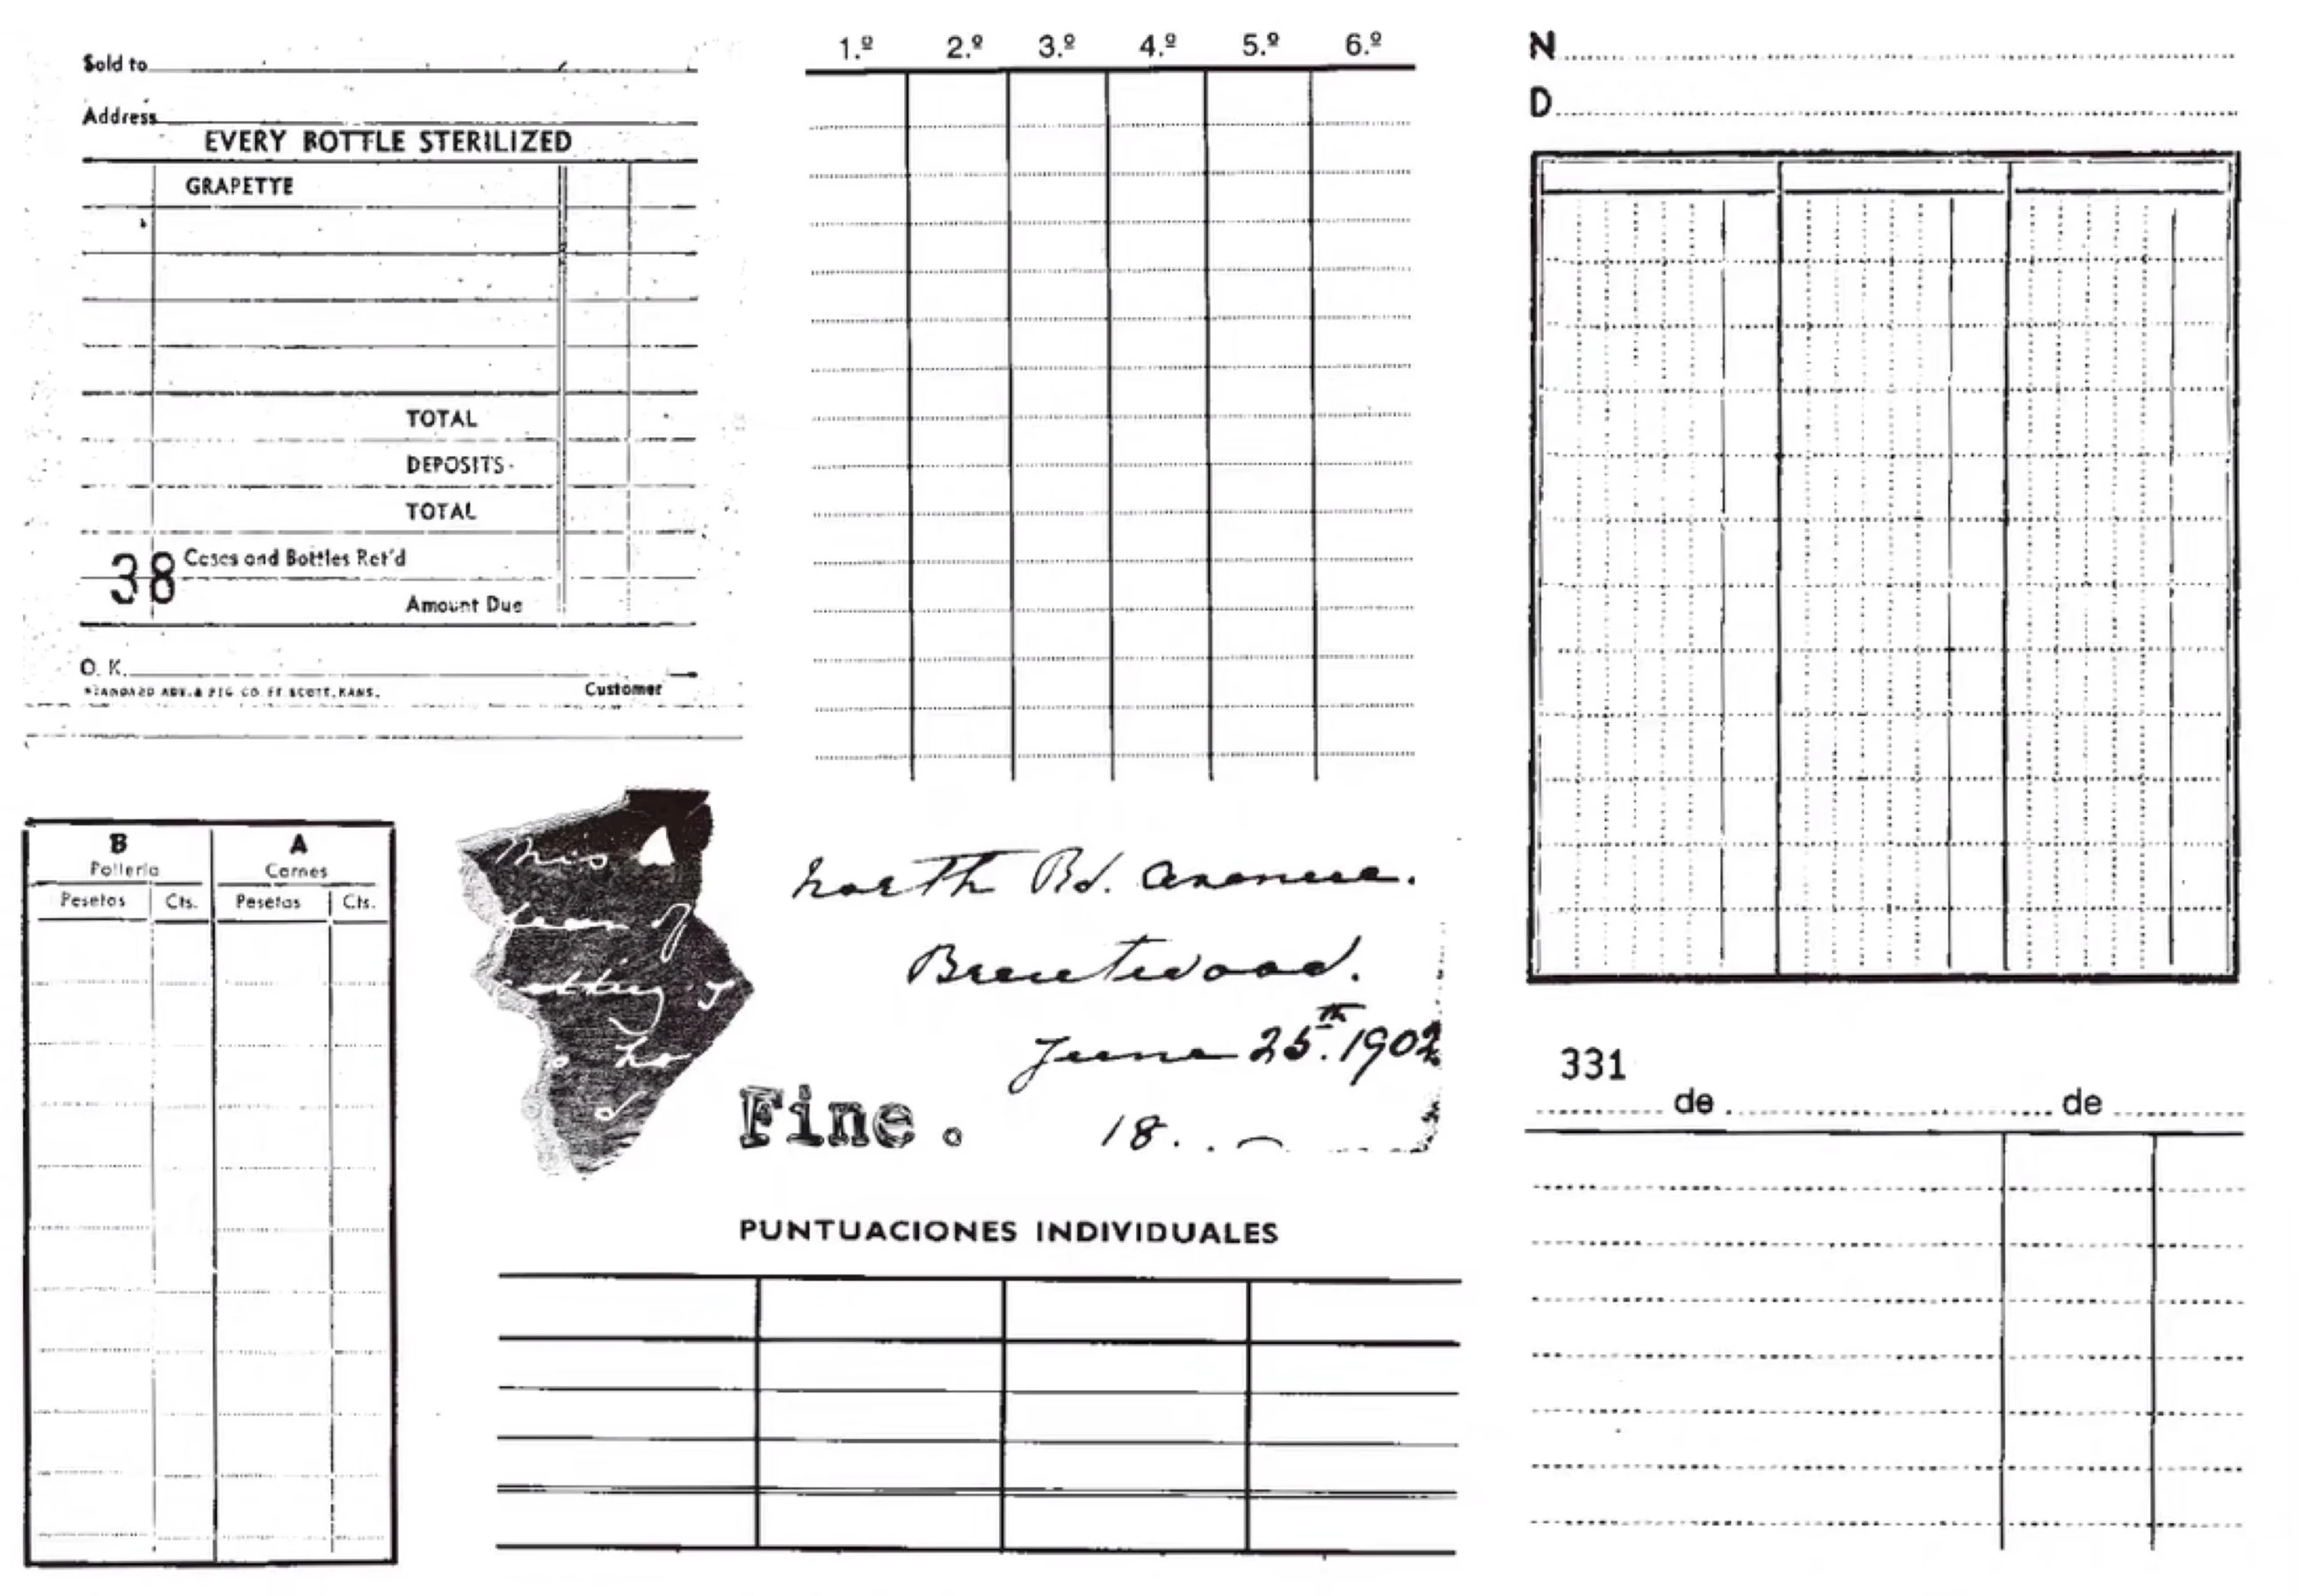 Sold to
Address
EVERY BOTTLE STERILIZED
GRAPETTE
TOTAL
DEPOSITS
TOTAL
38 Cases and Bottles Ret'd
Amount Due
O. K.
STANDARD ADV. & PTG CO. FT SCOTT, KANS.
Customer
1.º 2.º 3.º 4.º 5.º 6.º
N
D
B A
Pollería Carnes
Pesetas Cts. Pesetas Cts.
North Rd. Avenue.
Brentwood.
June 25th. 1902
18.
Fine.
331
de de
PUNTUACIONES INDIVIDUALES